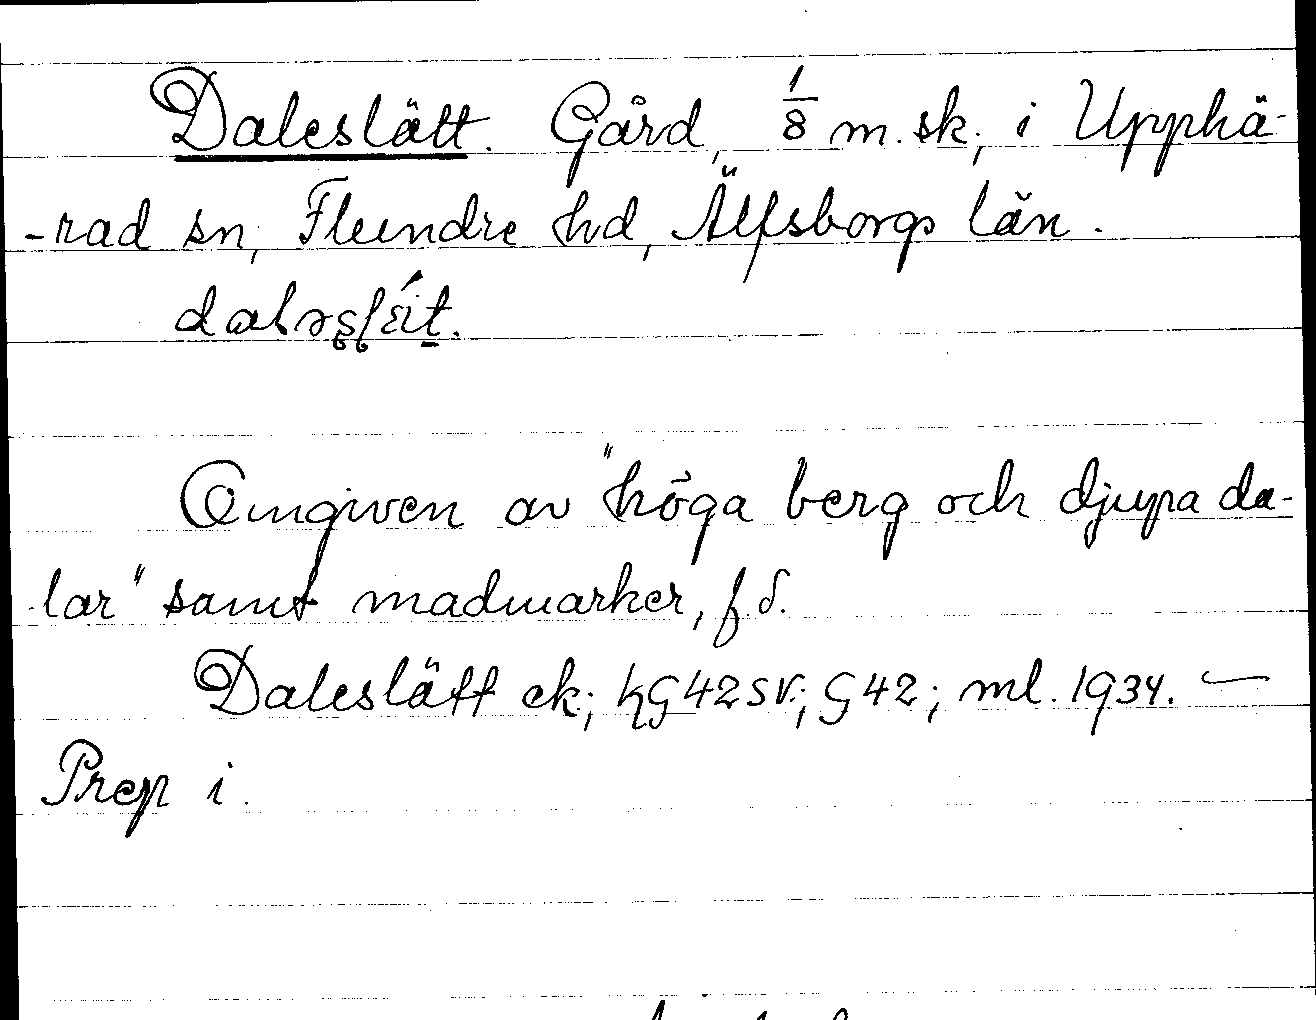 Daleslätt. Gård, 1/8 m. sk, i Upphä-
-rad sn, Flundre hd, Älfsborgs län.
Omgiven av "höga berg och djupa da-
lar" samt madmarker, f ö.
Daleslätt ek; hG42SV; G42; ml. 1934. —
Prep i.